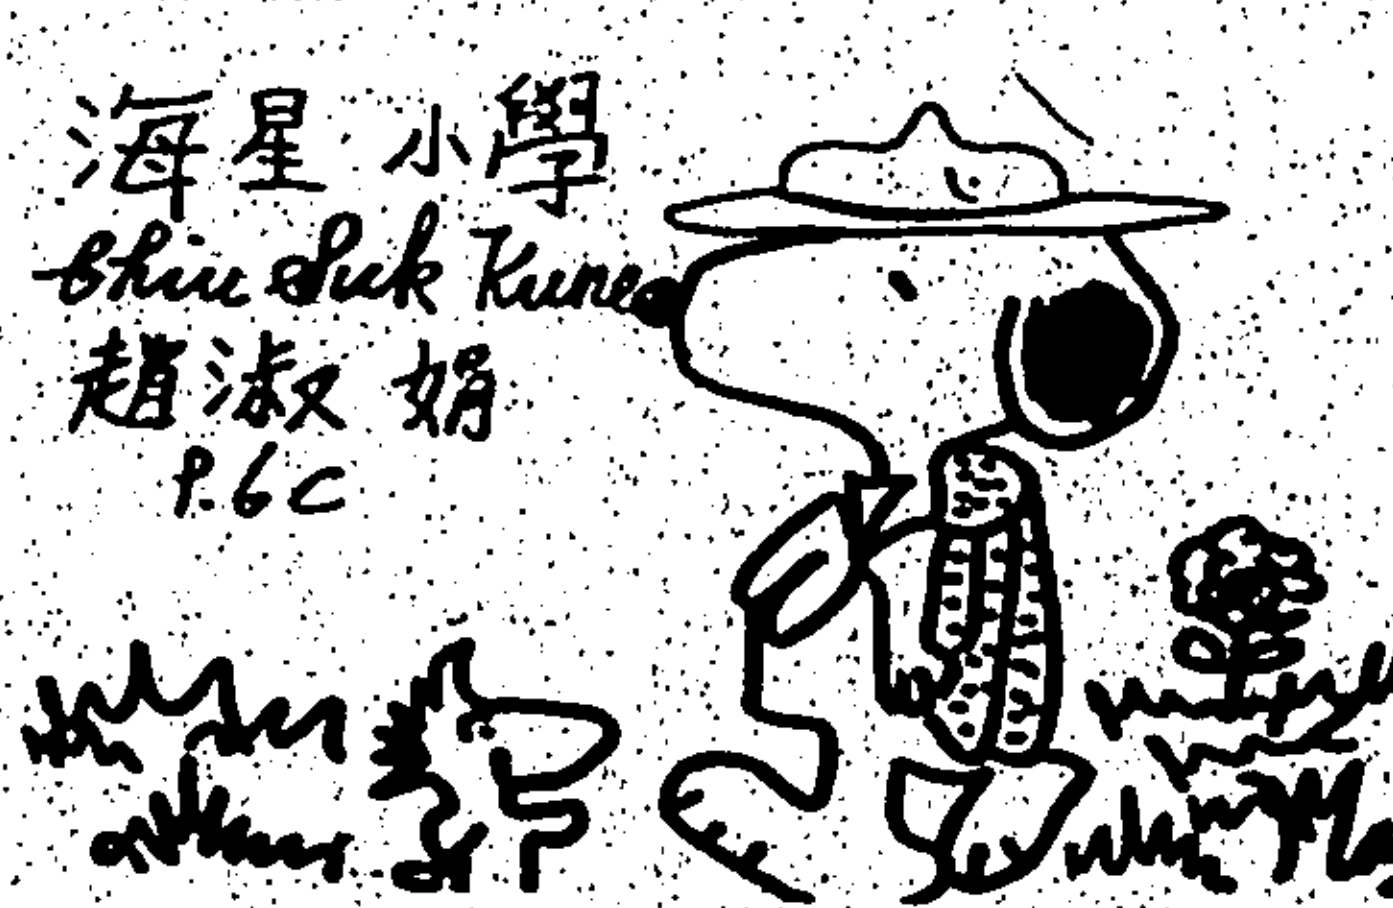 海星小學
Chiu Suk Kune
趙淑娟
P.6C